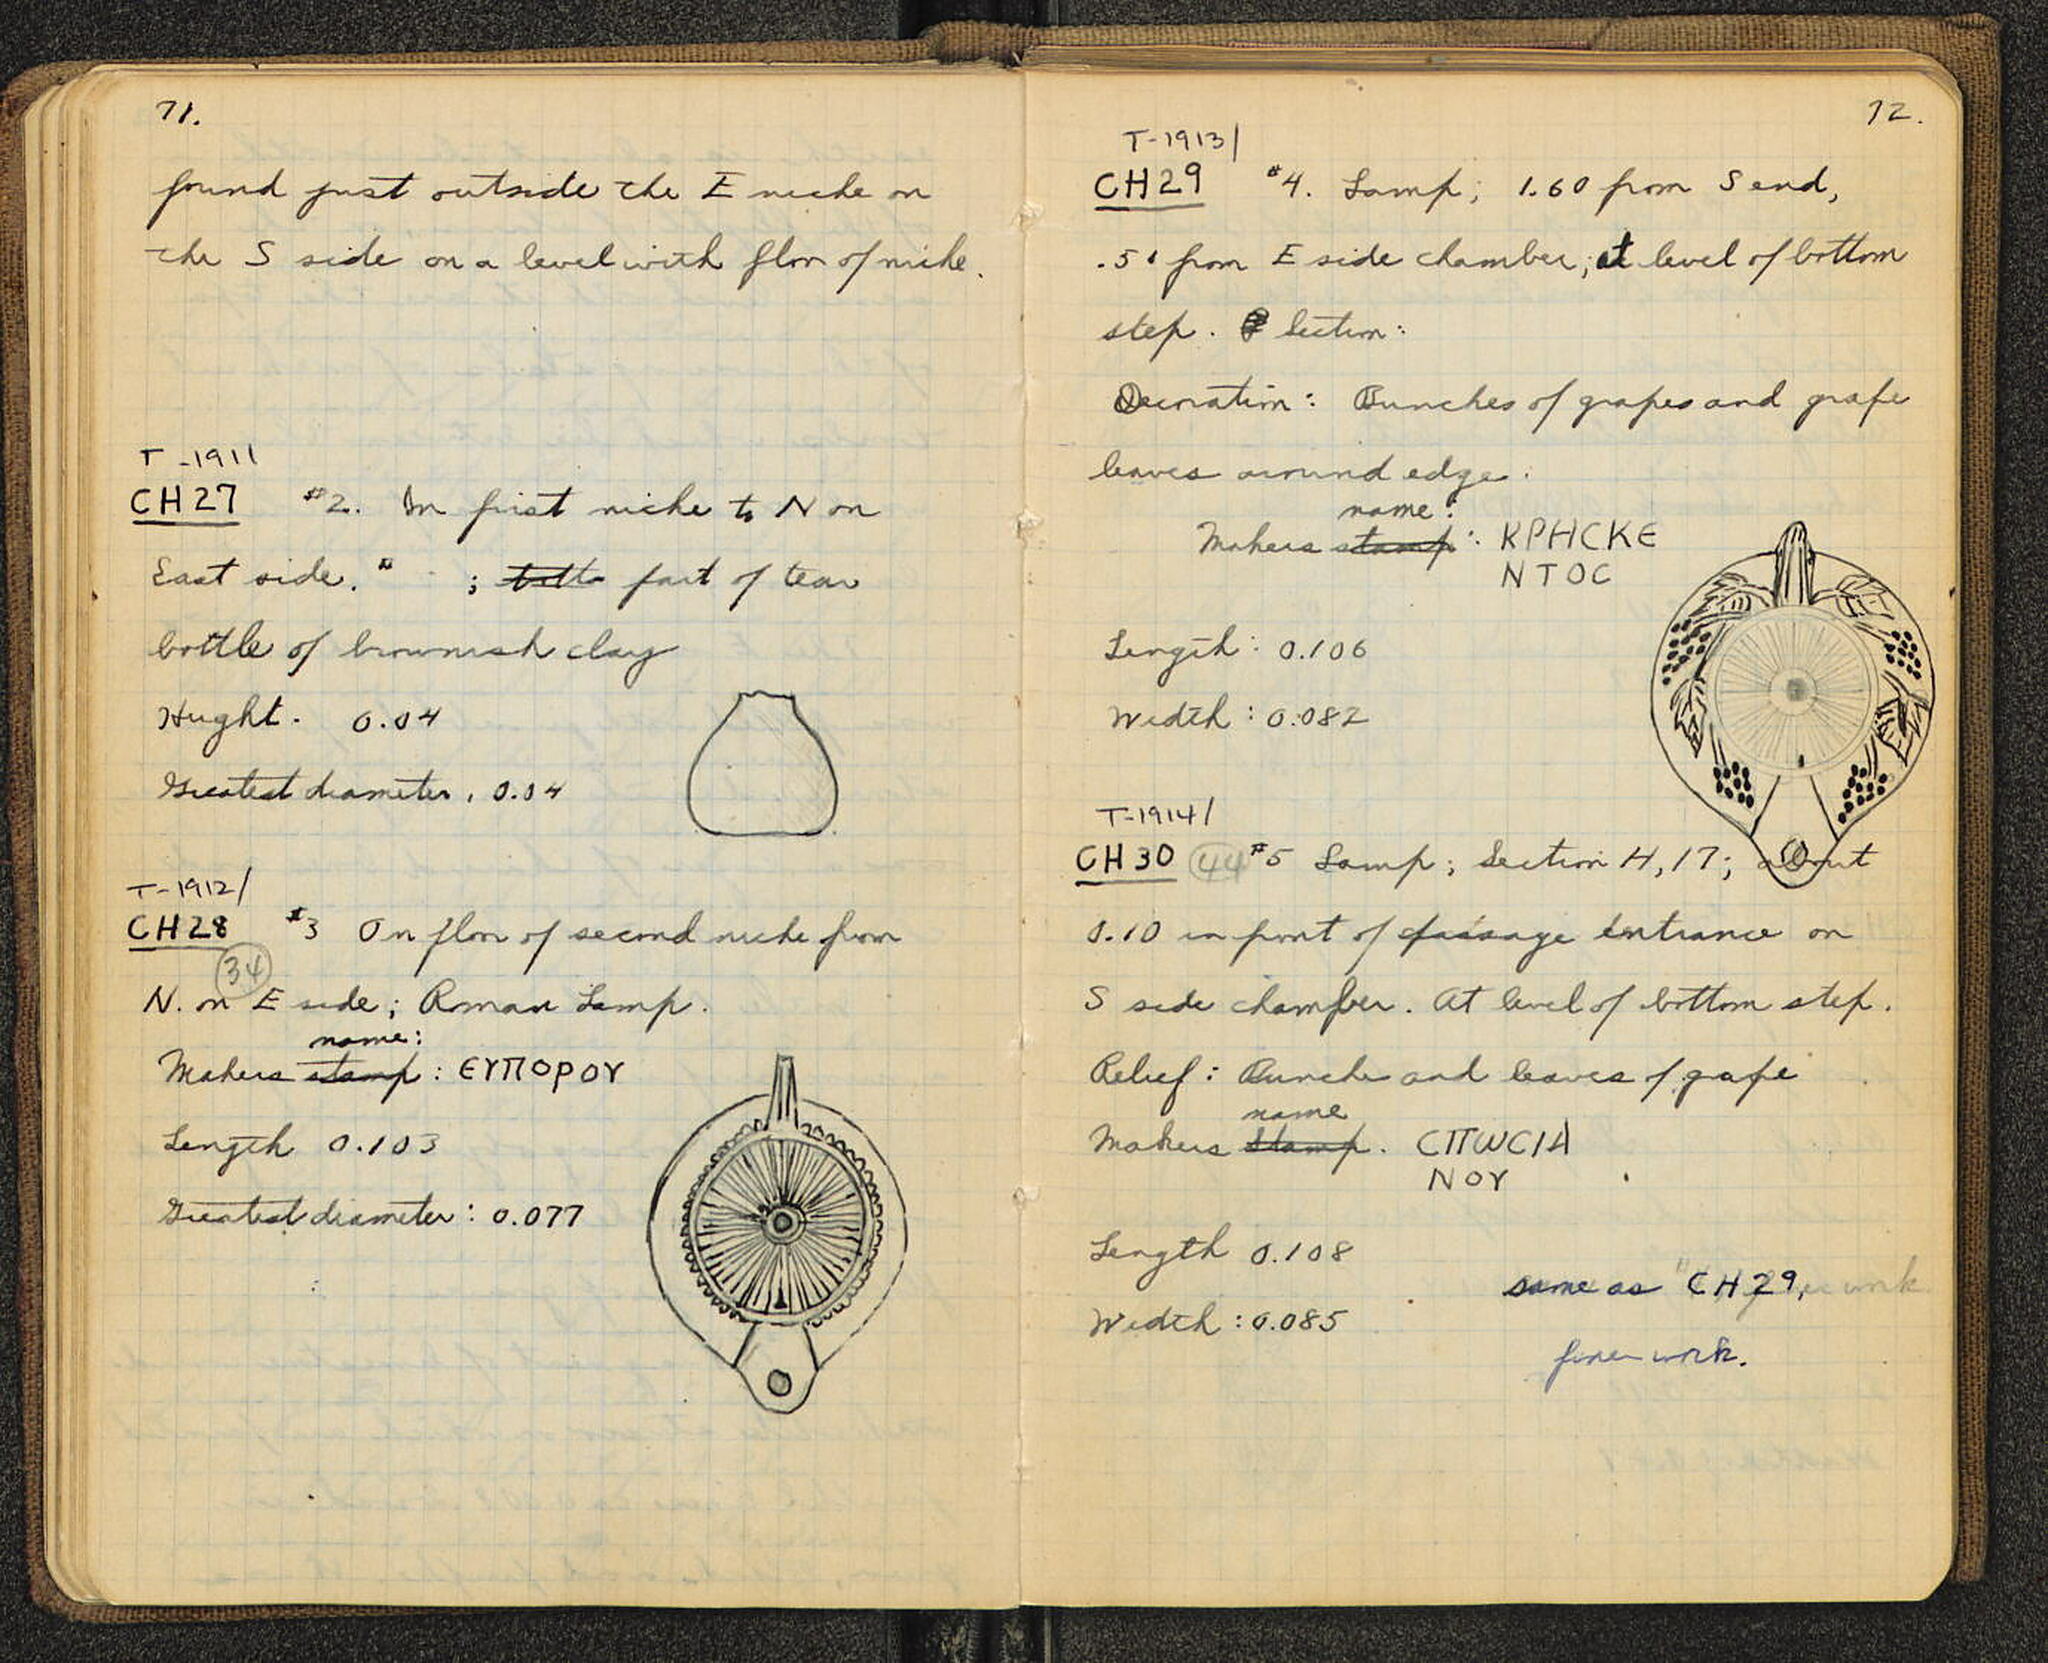 71.
found just outside the E niche on
the S side on a level with floor of niche.
T-1911
CH27 #2. In first niche to N on
East side. " ; part of tear
bottle of brownish clay
Hught. 0.04
Greatest diameter. 0.04
T-1912/
CH28 #3 On floor of second niche from
34
N. on E side; Roman Lamp.
name:
Makers stamp: ЄΥΠΟΡΟΥ
Length 0.103
Greatest diameter: 0.077
72.
T-1913/
CH29 #4. Lamp; 1.60 from S end,
from E side chamber; at level of bottom
step. Section:
Decoration: Bunches of grapes and grape
leaves around edge.
name:
Makers stamp: ΚΡΗCΚЄ
ΝΤΟC
Length: 0.106
Width: 0.082
T-1914/
CH30 44 #5 Lamp; Section H, 17; about
0.10 in front of passage entrance on
S side chamber. At level of bottom step.
Relief: Bunche and leaves of grape
name
Makers stamp. CΠWCIA
ΝΟΥ
Length 0.108
same as CH29,
Width: 0.085
finer work.